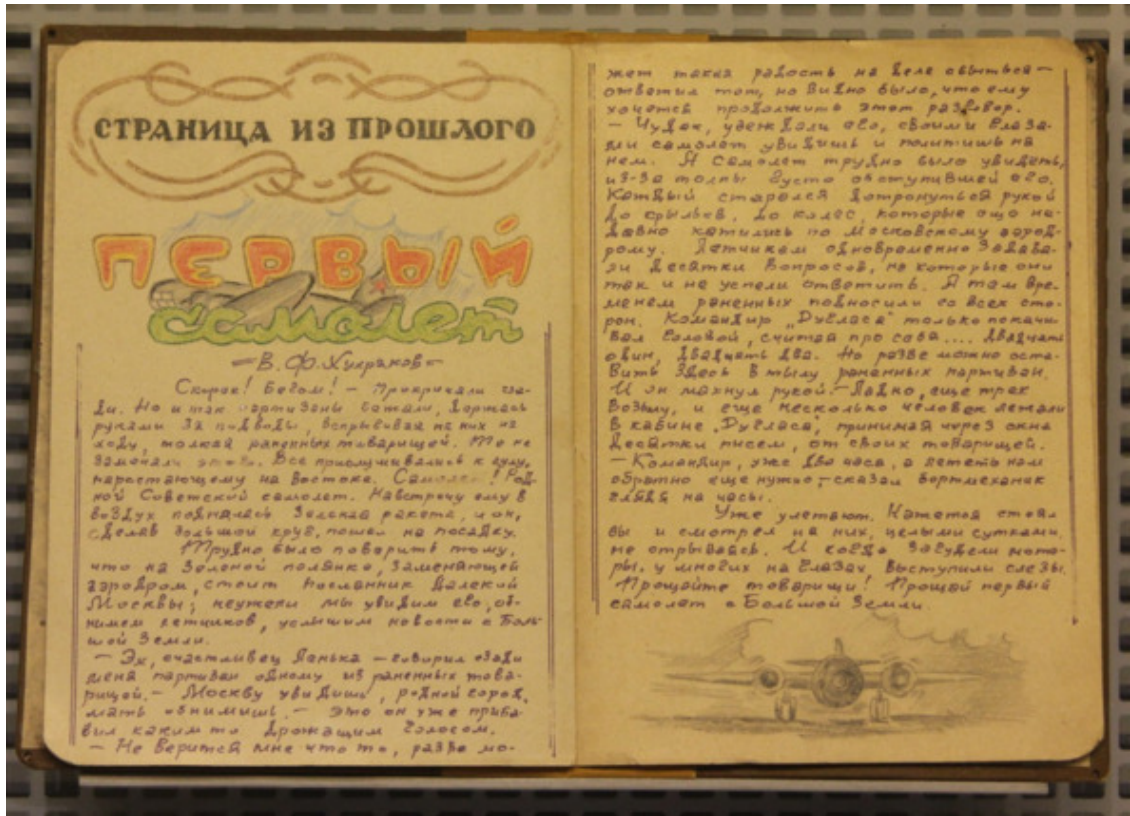 СТРАНИЦА ИЗ ПРОШЛОГО
ПЕРВЫЙ
самолет
— В. Ф. —
Скорее! Бегом! — Прокричали сза-
ди. Но и так партизаны бежали, держась
руками за подводы, вспрыгивая на них на
ходу, толкая раненных товарищей. Те не
замечали этого. Все прислушивались к гулу,
нарастающему на востоке. Самолет! Род-
ной Советский самолет. Навстречу ему в
воздух поднялась зеленая ракета, и он,
сделав большой круг, пошел на посадку.
Трудно было поверить тому,
что на зеленой полянке, заменяющей
аэродром, стоит посланник далекой
Москвы; неужели мы увидим его, об-
нимем летчиков, услышим новости с Боль-
шой Земли.
— Эх, счастливец Ленька — говорил сзади
меня партизан одному из раненных това-
рищей. — Москву увидишь, родной город,
мать обнимышь. — Это он уже приба-
вил каким то дрожащим голосом.
— Не верится мне что то, разве мо-
жет такая радость на деле сбыться —
ответил тот, но видно было, что ему
хочется продолжить этот разговор.
— Чудак, убеждали его, своими глаза-
ми самолет увидишь и политишь на
нем. А самолет трудно было увидеть,
из-за толпы густо обступившей его.
Каждый старался дотронуться рукой
до крыльев, до колес, которые още не-
давно катились по Московскому аэрод-
рому. Летчикам одновременно задава-
ли десятки вопросов, на которые они
так и не успели ответить. А тем вре-
менем раненных подносили со всех сто-
рон. Командир „Дугласа" только покачи-
вал головой, считая про себя.... Двадцать
один, двадцать два. Но разве можно оста-
вить здесь в тылу раненных партизан.
И он махнул рукой. — Ладно, еще трех
возьму, и еще несколько человек лежали
в кабине „Дугласа", принимая через окна
десятки писем, от своих товарищей.
— Командир, уже два часа, а лететь нам
обратно еще нужно, — сказал бортмеханик
глядя на часы.
Уже улетают. Кажется стоял
бы и смотрел на них, целыми сутками,
не отрываясь. И когда загудели мото-
ры, у многих на глазах выступили слезы.
Прощайте товарищи! Прощай первый
самолет с Большой Земли.